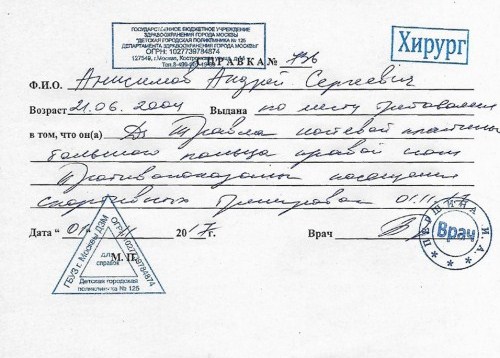 ГОСУДАРСТВЕННОЕ БЮДЖЕТНОЕ УЧРЕЖДЕНИЕ
ЗДРАВООХРАНЕНИЯ ГОРОДА МОСКВЫ
"ДЕТСКАЯ ГОРОДСКАЯ ПОЛИКЛИНИКА № 125
ДЕПАРТАМЕНТА ЗДРАВООХРАНЕНИЯ ГОРОДА МОСКВЫ"
ОГРН: 1027739784874
127549, г.Москва,
Хирург
СПРАВКА № 736
Ф.И.О. Анисимов Андрей Сергеевич
Возраст 21.06.2004 Выдана по месту требования
в том, что он(а) Ds Травма ногтевой пластины
большого пальца правой
Противопоказаны посещения
спортивных тренировок 01.11.17
Дата " 01 " 11 2017г. Врач
М.П.
ГБУЗ г. Москвы ДЗМ
ОГРН 1027739784874
для
справок
Детская городская
поликлиника № 125
ПЕРШИНА И.А.
Врач